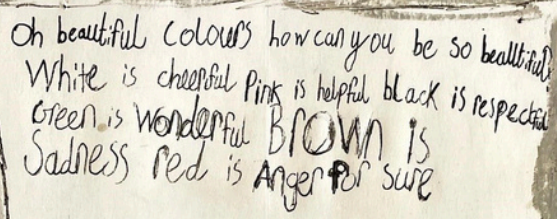 Oh beautiful colours how can you be so beautiful?
White is cheerful Pink is helpful black is respectful
Green is Wonderful BROWN is
Sadness red is Anger for sure